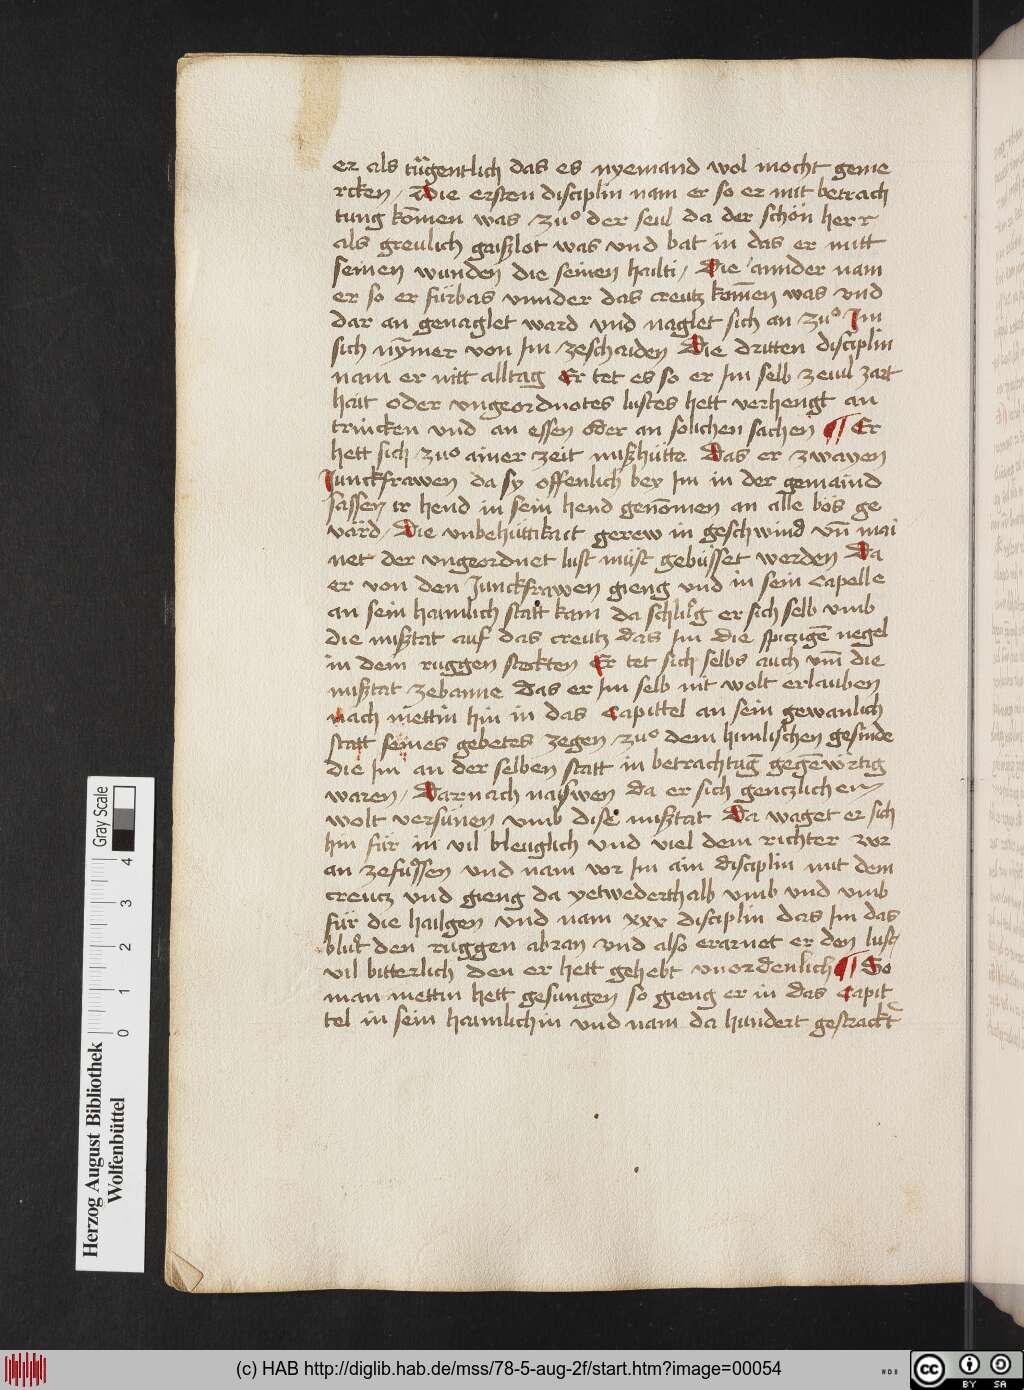 er als tugentlich das es nyemand wol mocht geme
rcken / Die ersten disciplin nam er so er mit betrach
tung komen was / zuo der seul da der schön herr
als greulich gaißlot was vnd bat in das er mitt
seinen wunden die seinen hailti / Die annder nam
er so er fürbas vnnder das creutz komen was vnd
dar an genaglet ward vnd naglet sich an zuo Im
sich nymer von Im zeschaiden Die dritten disciplin
nam er nitt alltag Er tet es so er Im selb zeuil zart
hait oder vngeordnotes lustes hett verhengt an
trincken vnd an essen oder an solichen sachen ¶ Er
hett sich zuo ainer zeit mißhütte Das er zwayen
Junckfrawen da sy offenlich bey Im in der gemaind
sassen ir hend in sein hend genomen an alle bös ge
värd / Die vnbehüttikait gerew in geschwind vn mai
net der vngeordnet lust müst gebüsset werden Da
er von den Junckfrawen gieng vnd in sein Capelle
an sein haimlich statt kam da schluog er sich selb vmb
die mißtat auf das creutz das Im die spiczige negel
in dem ruggen steckten Er tet sich selbs auch vm die
mißtat zebanne Das er Im selb nit wolt erlauben
nach mettin hin in das Capittel an sein gewanlich
statt seines gebetes zegen zuo dem himlischen gesinde
die Im an der selben statt in betrachtug gegewirtig
waren / Darnach da er sich genczlichen
wolt versünen vmb dise mißtat Da waget er sich
hin für in vil bleuglich vnd viel dem richter zur
an zefuossen vnd nam vor Im ain disciplin mit dem
creutz vnd gieng da yetwederthalb vmb vnd vmb
für die hailgen vnd nam xxx disciplin das Im das
bluot den ruggen abran vnd also erarnet er den lust
vil bitterlich den er hett gehebt vnordenlich ¶ So
man mettin hett gesungen so gieng er in das Capit
tel in sein haimlichin vnd nam da hundert gestrackt
Herzog August Bibliothek
Wolfenbüttel
0 1 2 3 4
Gray Scale
(c) HAB http://diglib.hab.de/mss/78-5-aug-2f/start.htm?image=00054
cc BY SA